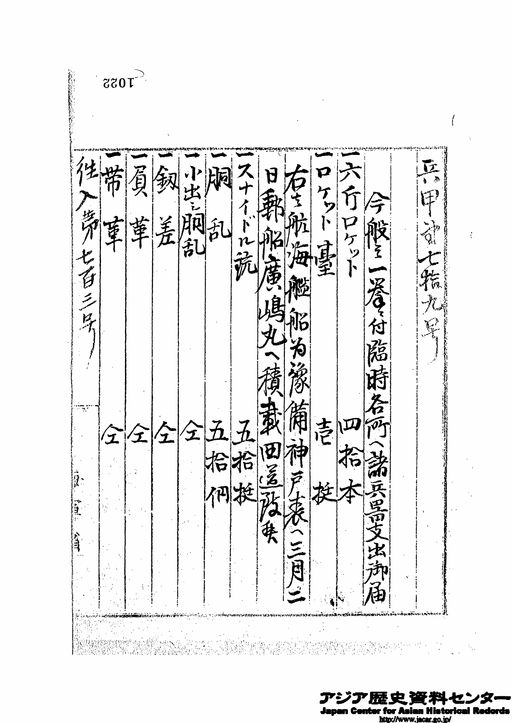 兵甲第七拾九号
今般之一挙ニ付臨時各所ヘ諸兵器支出御届
一六斤ロケット 四拾本
一ロケット臺 壱挺
右之航海艦船為豫備神戸表ヘ三月二
日郵船廣嶋丸ヘ積載回送致候
一スナイドル銃 五拾挺
一胴乱 五拾個
一小出シ胴乱 仝
一釼差 仝
一負革 仝
一帯革 仝
往入第七百三号
海軍省
1022
アジア歴史資料センター
Japan Center for Asian Historical Records
http://www.jacar.go.jp/